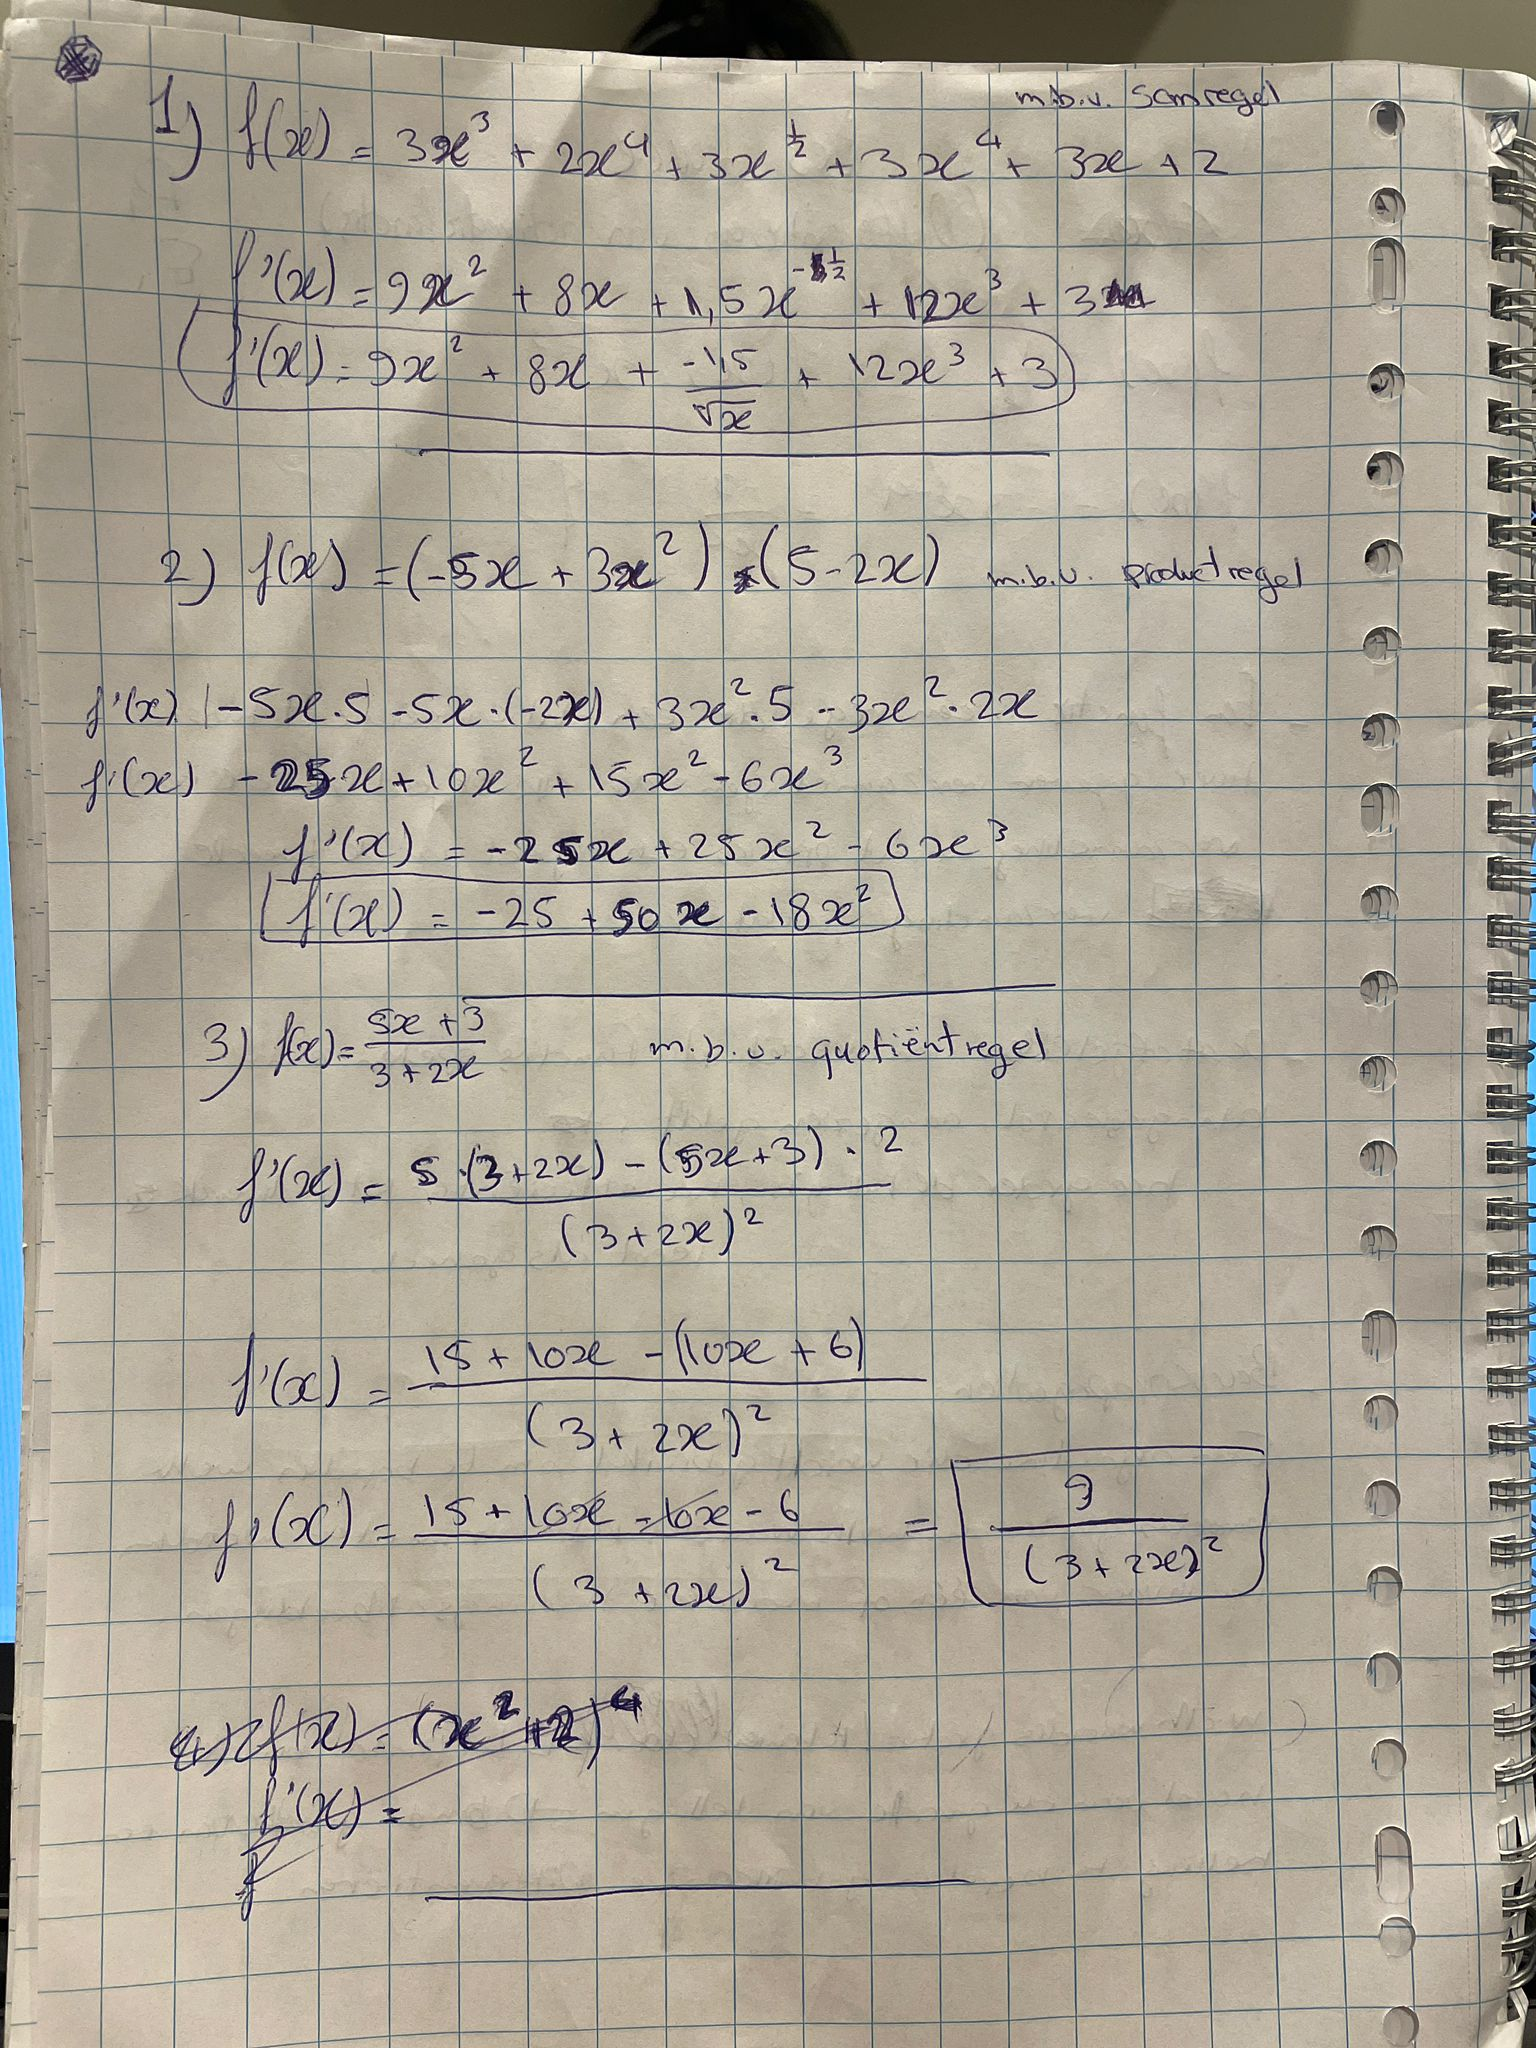 m.b.v. somregel
1) f(x) = 3x³ + 2x⁴ + 3x^½ + 3x⁴ + 3x + 2
f'(x) = 9x² + 8x + 1,5x^-½ + 12x³ + 3
f'(x) = 9x² + 8x + -1,5/√x + 12x³ + 3
2) f(x) = (-5x + 3x²) * (5 - 2x) m.b.v. productregel
f'(x) -5x · 5 - 5x · (-2x) + 3x² · 5 - 3x² · 2x
f'(x) - 25x + 10x² + 15x² - 6x³
f'(x) = -25x + 25x² - 6x³
f'(x) = -25 + 50x - 18x²
3) f(x) = (5x + 3)/(3 + 2x) m.b.v. quotiëntregel
f'(x) = (5 · (3 + 2x) - (5x + 3) · 2)/(3 + 2x)²
f'(x) = (15 + 10x - (10x + 6))/(3 + 2x)²
f'(x) = (15 + 10x - 10x - 6)/(3 + 2x)² = 9/(3 + 2x)²
4) f(x) = (x² + 2)⁴
f'(x) =
f